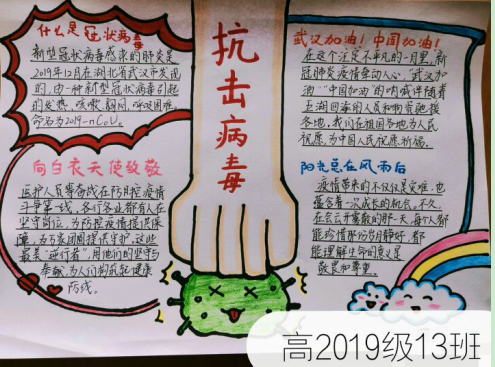 什么是冠状病毒
新型冠状病毒感染的肺炎是
2019年12月在湖北省武汉市发现
的,由一种新型冠状病毒引起
的发热、咳嗽、胸闷、呼吸困难,
命名为2019-nCoV。
向白衣天使致敬
医护人员奋战在防治疫情
斗争第一线,各行各业都有人在
坚守岗位,为防控疫情提供保
障,为万家团圆提供守护。这些
最美"逆行者",用他们的坚守与
奉献,为人们构筑起健康
防线。
抗击病毒
武汉加油!中国加油!
在这个注定不平凡的一月里,新
冠肺炎疫情牵动人心,"武汉加
油""中国加油"的呐喊伴随着
五湖四海的人员和物资驰援
各地,我们在祖国各地为人民
祝愿,为中国人民祝愿、祈福。
阳光总在风雨后
疫情带来的不仅仅是灾难,也
蕴含着一次成长的机会,不久,
在会云开雾散的那一天,每个人都
能珍惜那份岁月静好,都
能理解生命的意义是
敬畏和尊重。
高2019级13班